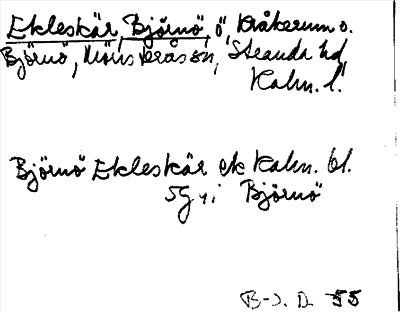 Ekleskär, Björnö, ö, Kråkerum o.
Björnö, Mönsterås sn, Stranda hd,
Kalm. l.
Björnö Ekleskär ek Kalm. bl.
5G v, i Björnö
B-s. D. 55